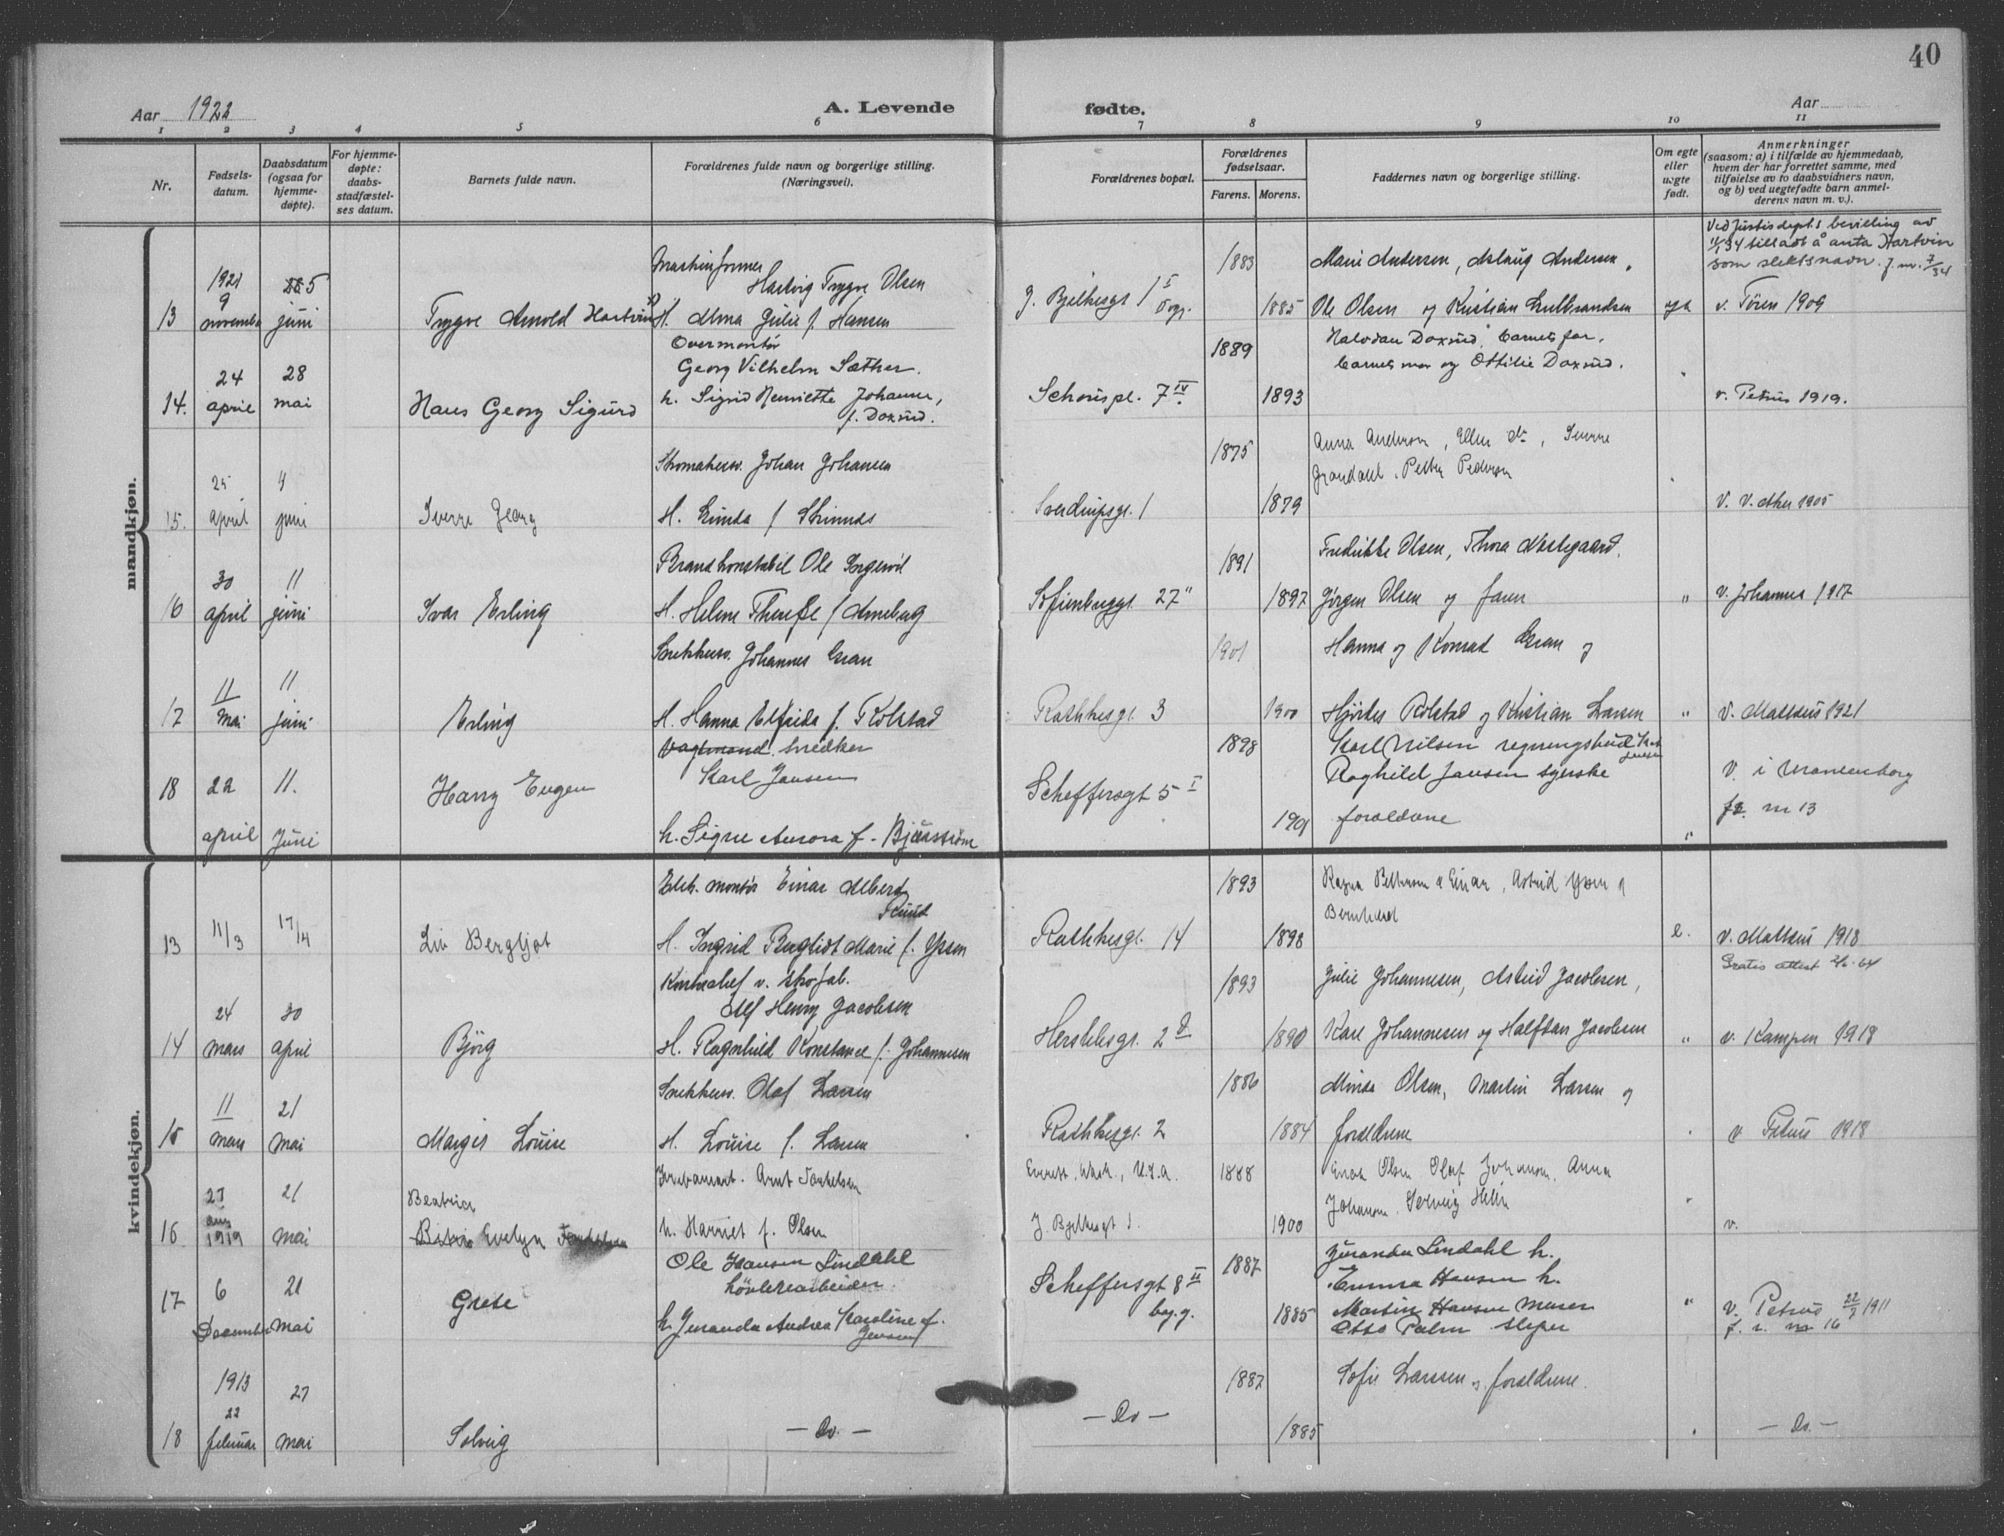 40
Aar 1922
A. Levende fødte.
Aar
1 2 3 4 5 6 7 8 9 10 11
Nr.
Fødsels-
datum.
Daabsdatum
(ogsaa for
hjemme-
døpte).
For hjemme-
døpte:
daabs-
stadfæstel-
ses datum.
Barnets fulde navn.
Forældrenes fulde navn og borgerlige stilling.
(Næringsvei).
Forældrenes bopæl.
Forældrenes
fødselsaar.
Farens. Morens.
Faddernes navn og borgerlige stilling.
Om egte
eller
uegte
født.
Anmerkninger
(saasom: a) i tilfælde av hjemmedaab,
hvem der har forrettet samme, med
tilføielse av to daabsvidners navn,
og b) ved uegtefødte barn anmel-
derens navn m. v.).
mandkjøn.
Ved Justisdept.s bevilling av
34 tilladt å anta Hartvin
som slektsnavn. J. nr. 7/34
13
1921
9
november
5
juni
Trygve Arnold Hartvin
Maskinformer
Hartvig Trygve Olsen
H. Alma Julie f. Hansen
J. Bjelkesgt 1 I
opg.
1883
1885
Marie Andersen, Aslaug Andersen,
Ole Olsen og Kristian Gulbrandsen
v. Tøien 1909
14.
24
april
28
mai
Hans Georg Sigurd
Overmontør
Georg Vilhelm Sæther.
h. Sigrid Henriette Johanne,
f. Doxrud.
Schouspl. 7 IV
1889
1893
Halvdan Doxrud, barnets far,
barnets mor og Ottilie Doxrud.
v. Petrus 1919.
15.
25
april
4
juni
Sverre Georg
Skomakersv. Johan Johansen
H. Gunda f
Sverdrupsgt. 1
1875
1879
Anna Anderson, Ellen do, Sverre
Grøndahl, Petter Pederson
V. V. Aker 1905
16
30
april
11
juni
Ivar Erling
Brandkonstabel Ole
H. Helene Therese f Arneberg
Sofienberggt. 27 II
1891
1897
Fredrikke Olsen, Thora Nostegaard,
Jørgen Olsen og faren
"
v. Johannes 1917
17
11
mai
11
juni
Erling
Snekkersv. Johannes Gran
H. Hanna Elfrida f. Rolstad
Rathkesgt. 3
1901
1900
Hanna og Konrad Gran og
Hjørdis Rolstad og Kristian Larsen
"
V. Mattæus 1921
18
22
april
11.
Juni
Harry Eugen
Vagtmand snedker
Karl Jansen
h. Signe Aurora f. Bjurström
Scheffersgt 5 I
1898
1901
Karl Nilsen regningsbud
Raghild Jansen syerske
foraldrene
"
V. i Uranienborg
nr 13
kvindekjøn.
13
11/3
17/4
Liv Bergljot
Elek. montør Einar Albert
Ruud
H. Ingrid Bergliot Marie f. Yssen
Rathkesgt. 14
1893
1898
Ragna Pettersen a Einar, Astrid Yssen og
Bernhard
e.
v. Mattæus 1918
Gratis attest 2/6-64
14
24
mars
30
april
Bjørg
Kontorchef v. skofab.
Alf Henry Jacobsen
H. Ragnhild Konstance f. Johannesen
Herslebsgt. 2
1893
1890
Julie Johannesen, Astrid Jacobsen,
Kare Johannesen og Halfdan Jacobsen
"
v. Kampen 1918
15
11
mars
21
mai
Margit Louise
Snekkersv. Olaf Larsen
H. Louise f. Larsen
Rathkesgt. 2
1886
1884
Minda Olsen, Martin Larsen og
foraldrene
v Petrus 1918
16
27
aug
1919
21
mai
Beatrice
Evelyn Torkelsen
Arnt Torkelsen
h. Harriet f. Olsen
Everett, Wash., U.S.A.
J. Bjelkesgt 1.
1888
1900
Olsen Olaf Johanson, Anna
Johanson, Solveig
v.
17
6
December
21
mai
Grete
Ole Hansen Lindahl
høvleriarbeider
h. Juranda Andrea Karoline f.
Jensen
Scheffersgt 8 II
bg.g.
1887
1885
Juranda Lindahl h.
Emma Hansen h.
Martin Hansen murer
Otto Palm sliper
"
V. Petrus 22/1 1911
f. i. nr 16
18
1913
22
februar
27
mai
Solveig
— Do. —
— Do —
1887
1885
Sofie Larssen og foraldrene.
— Do. —